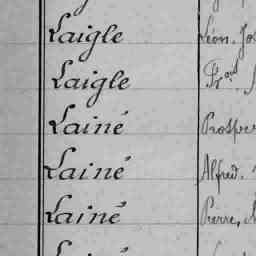 Laigle Léon, Jo
Laigle Fçois
Lainé Prosper
Lainé Alfred
Lainé Pierre,